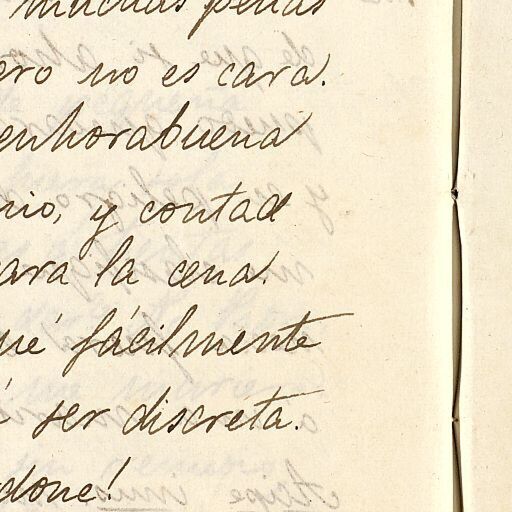 muchas penas
ero no es cara.
enhorabuena
nio, y contad
ara la cena.
ué fácilmente
ser discreta.
done!